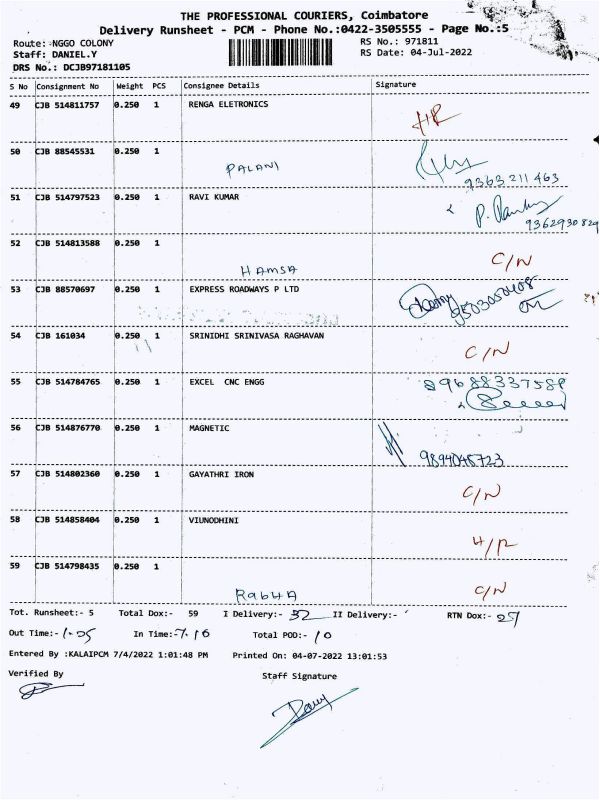 THE PROFESSIONAL COURIERS, Coimbatore
Delivery Runsheet - PCM - Phone No.:0422-3505555 - Page No.:5
Route: NGGO COLONY RS No.: 971811
Staff: DANIEL.Y RS Date: 04-Jul-2022
DRS No.: DCJB97181105
S No Consignment No Weight PCS Consignee Details Signature
49 CJB 514811757 0.250 1 RENGA ELETRONICS
50 CJB 88545531 0.250 1
PALANI 9363211463
51 CJB 514797523 0.250 1 RAVI KUMAR
9362930829
52 CJB 514813588 0.250 1 C/N
HAMSA
53 CJB 88570697 0.250 1 EXPRESS ROADWAYS P LTD
54 CJB 161034 0.250 1 SRINIDHI SRINIVASA RAGHAVAN C/N
55 CJB 514784765 0.250 1 EXCEL CNC ENGG
56 CJB 514876770 0.250 1 MAGNETIC
9894048723
57 CJB 514802360 0.250 1 GAYATHRI IRON C/N
58 CJB 514858404 0.250 1 VIUNODHINI
59 CJB 514798435 0.250 1 C/N
Tot. Runsheet:- 5 Total Dox:- 59 I Delivery:- 32 II Delivery:- RTN Dox:- 27
Out Time:- In Time:- 7.16 Total POD:- 10
Entered By :KALAIPCM 7/4/2022 1:01:48 PM Printed On: 04-07-2022 13:01:53
Verified By Staff Signature